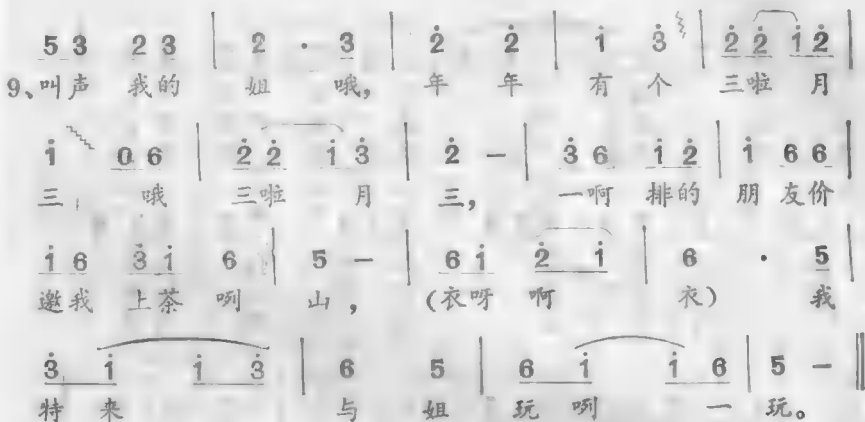 5 3 2 3 | 2 · 3 | 2̇ 2̇ | i̇ 3̇ | 2̇ 2̇ i̇ 2̇
9、叫声 我的 姐 哦, 年 年 有 个 三啦 月
i̇ 0 6 | 2̇ 2̇ i̇ 3̇ | 2̇ – | 3̇ 6 i̇ 2̇ | i̇ 6 6 |
三 哦 三啦 月 三, 一啊 排的 朋 友价
i̇ 6 3̇ i̇ 6 | 5 – | 6 i̇ 2̇ i̇ | 6 · 5 |
邀我 上茶 咧 山, (衣呀 啊 衣) 我
3̇ i̇ i̇ 3̇ | 6 5 | 6 i̇ i̇ 6 | 5 – ‖
特 来 与 姐 玩 咧 一 玩。